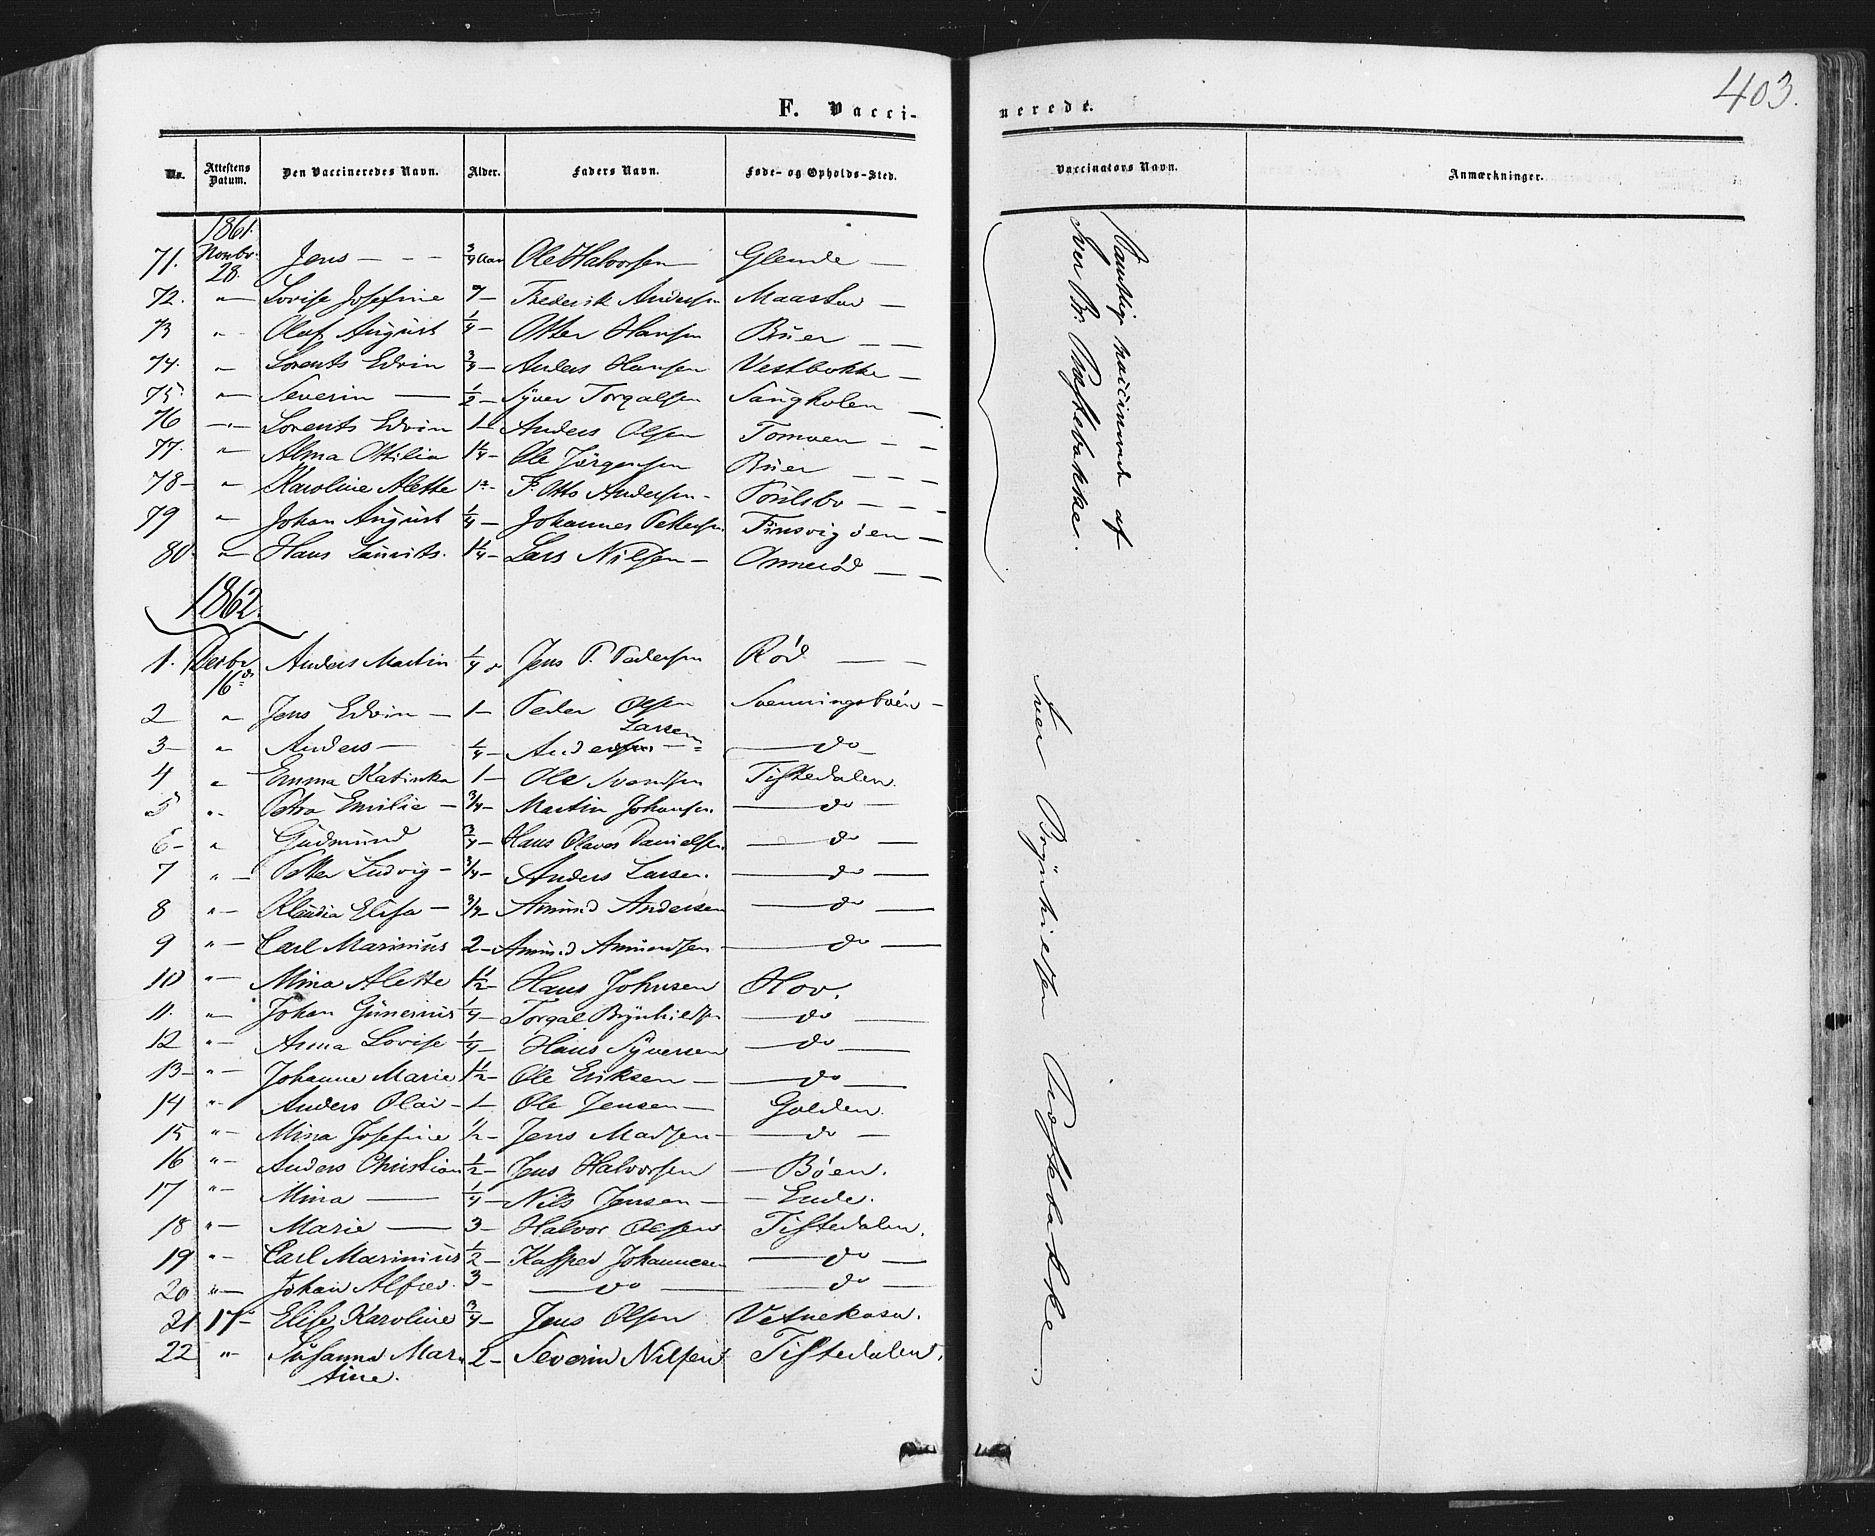 F. Vacci-
nerede.
403.
No. Attestens Datum. Den Vaccineredes Navn. Alder. Faders Navn. Føde- og Opholds-Sted. Vaccinators Navn. Anmærkninger.
1861.
71. Novbr. 28. Jens - - - 3/4 Aar Ole Halvorsen Glende —
72. " — Lovise Josefine 7 — Frederik Andersen —
73 " - Olaf August 1/4 - Otter Hansen Buer - -
74. " Lorents Edvin 3/4 - Anders Hansen Vestbokke -
75. " — Severin — 1/2 - Syver Torgalsen Saugholen —
76 — " — Lorents Edvin 1 - Anders Olsen —
77. " Alma Ottilia 1 1/4 - Ole Jörgensen Buer - - -
78 - " Karoline Alette Otto Andersen - - - -
79 " - Johan August 1/4 - Johannes Pettersen —
80. " Hans Laurits. 1 1/4 - Lars Nilsen - Ommerød - -
1862.
1. Decbr. 16de Anders Martin 1/4 Jens P. Pedersen Rød — -
2 " Jens Edvin - 1 - Peder Olsen Svenningsbøen -
3 - " Anders - 1/4 - Andersen Larsen — do —
4 " Emma Katinka 1 - Ole Svendsen Tistedalen.
5 " Petra Emilie - 3/4 - Martin Johansen. — do —
6 - " Gudmund 3/4 - Hans Olaves Danielsen. — do —
7 " — Petter Ludvig - 3/4 - Anders Larsen. — do —
8 " — Klaudia Elisa - 3/4 - Amund Andersen — do —
9 " — Carl Marinius 2 - Amund Amundsen - — do —
10 " — Mina Alette 1 1/2 - Hans Johnsen Hov.
11. " — Johan Gunerius 1/4 - Torgal Brynhildsen — do —
12 " — Anna Lovise 1/4 - Hans Syversen — do —
13 - " — Johanne Marie 1 1/2 - Ole Eriksen — — do —
14 " - Anders Olai - 1 - Ole Jensen — Golden.
15 " — Mina Josefine 1/2 - Jens Madsen - — do —
16 " — Anders Christian 1/2 - Jens Halvorsen — Bøen.
17 " — Mina — 1/4 - Nils Jensen - - Ende.
18 " — Marie — 3 - Halvor Olsen Tistedalen.
19 " - Carl Marinius 1/2 - Kasper Johannesen — do —
20 " — Johan Alfred. 3 - — do — — do —
21 17de Elise Karoline 3/4 - Jens Olsen Vetnekasa.
22 " — Susanna Mar- 2 - Severin Nilsen Tistedalen.
tine.
Samtlige vaccinerede af
Iver Br. Præstebakke.
Iver Brynhildsen Præstebakke.